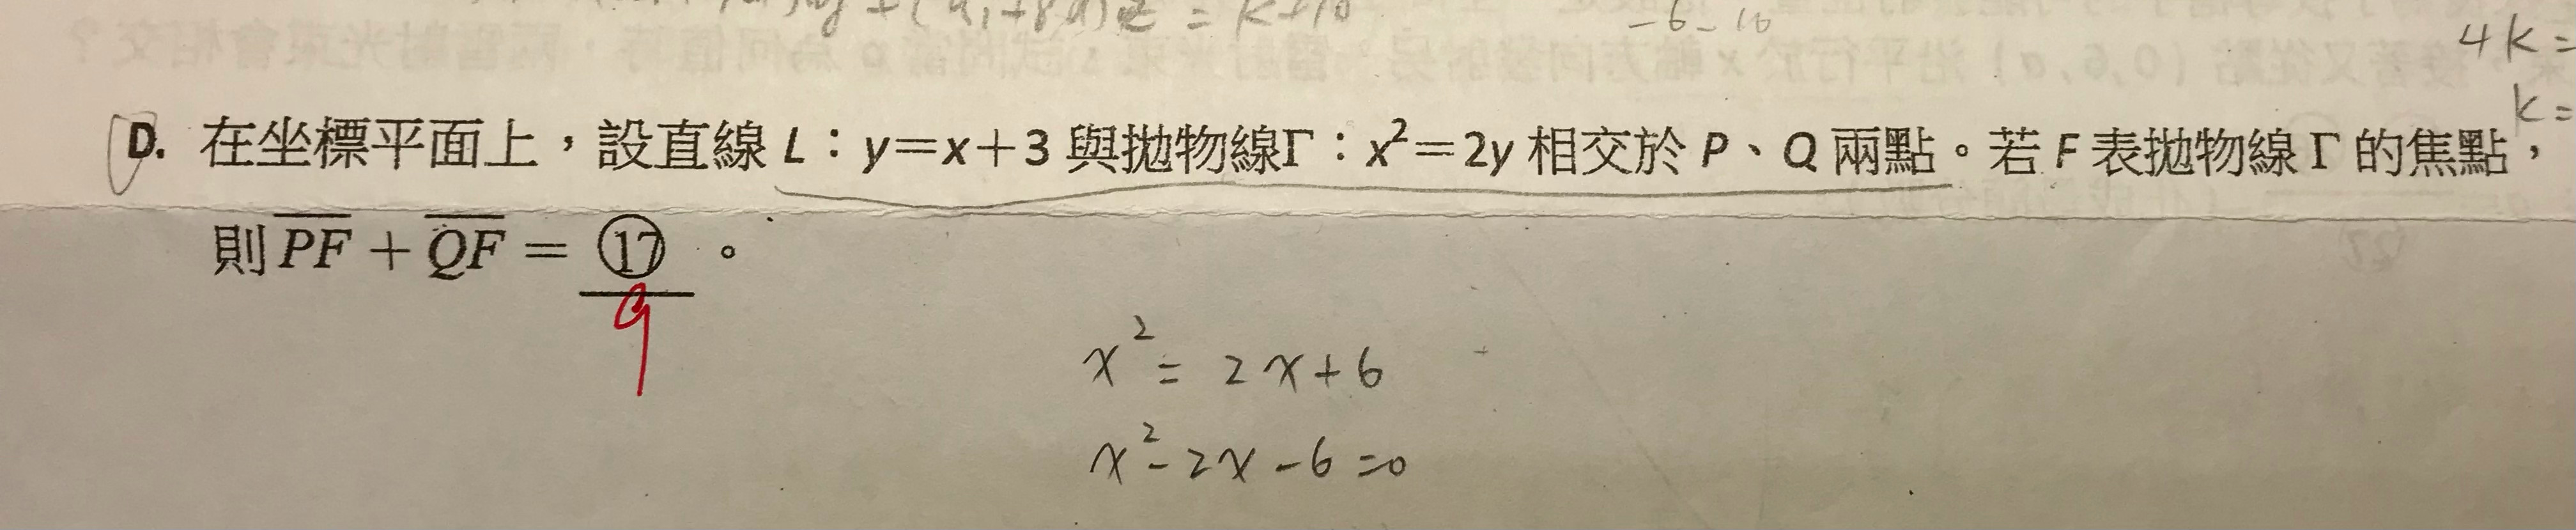 = k+10
-6-10
4k=
k=
D. 在坐標平面上，設直線 L：y=x+3 與拋物線Γ：x²=2y 相交於 P、Q 兩點。若 F 表拋物線 Γ 的焦點，
則 PF + QF = ⑰ 。
9
x² = 2x+6
x²-2x-6=0